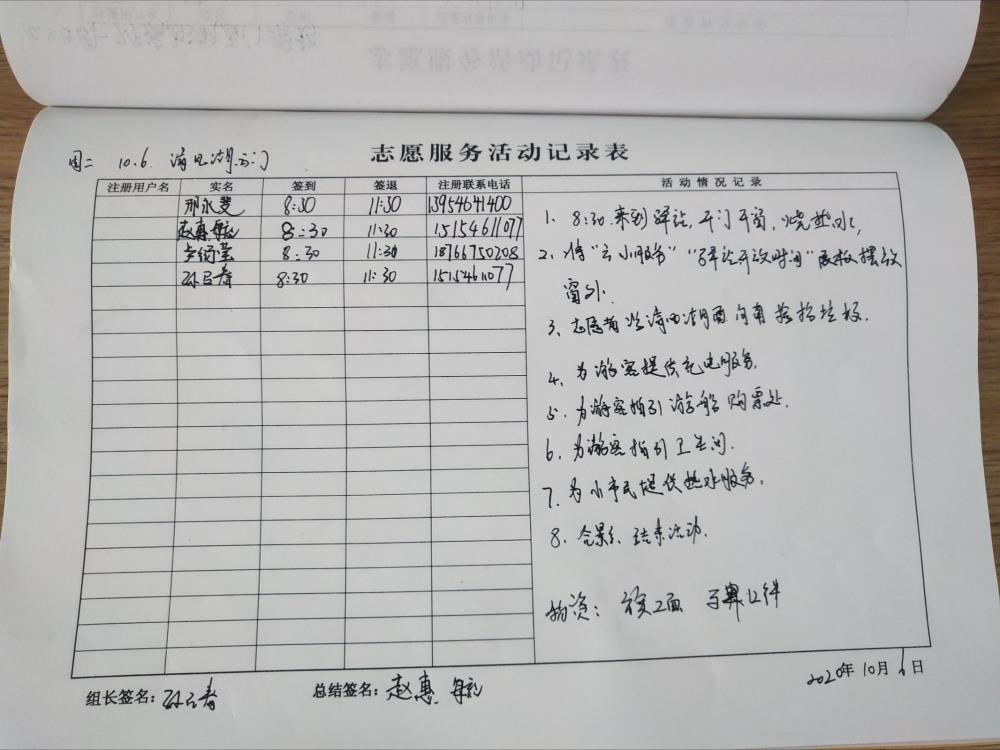 周二 10.6. 清风湖西门
志愿服务活动记录表
注册用户名 实名 签到 签退 注册联系电话 活动情况记录
邢永斐 8:30 11:30 13954641400
赵惠 8:30 11:30 15154611077
8:30 11:30 18766750208
8:30 11:30 15154611077
1. 8:30.来到驿站,开门开窗,烧热水,
2、将“ 小服务”“驿站开放时间” 摆放
窗外.
3、志愿者 清风湖 向南 捡垃圾.
4、为游客提供充电服务.
5. 为游客指引游船购票处.
6、为游客指引卫生间.
7. 为小市民提供热水服务.
8. 合影、结束活动.
物资:
2020年10月6日
组长签名:
总结签名:赵惠